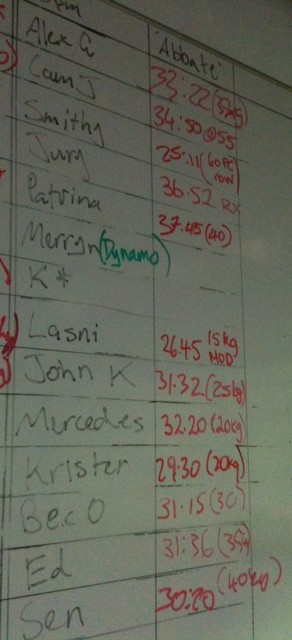 pm
Alex G 'Abbate'
Cam J 33:22
Smithy 34:50 @55
Jury 25:11 (60 PC row)
Patrina 36.52 RX
Merryn (Dynamo) 37.45 (40)
K*
Lasni 26.45 15kg MOD
John K 31.32 (25kg)
Mercedes 32.20 (20kg)
Krister 29:30 (20kg)
Bec O 31:15 (30)
Ed 31:36
Sen 30:20 (40kg)